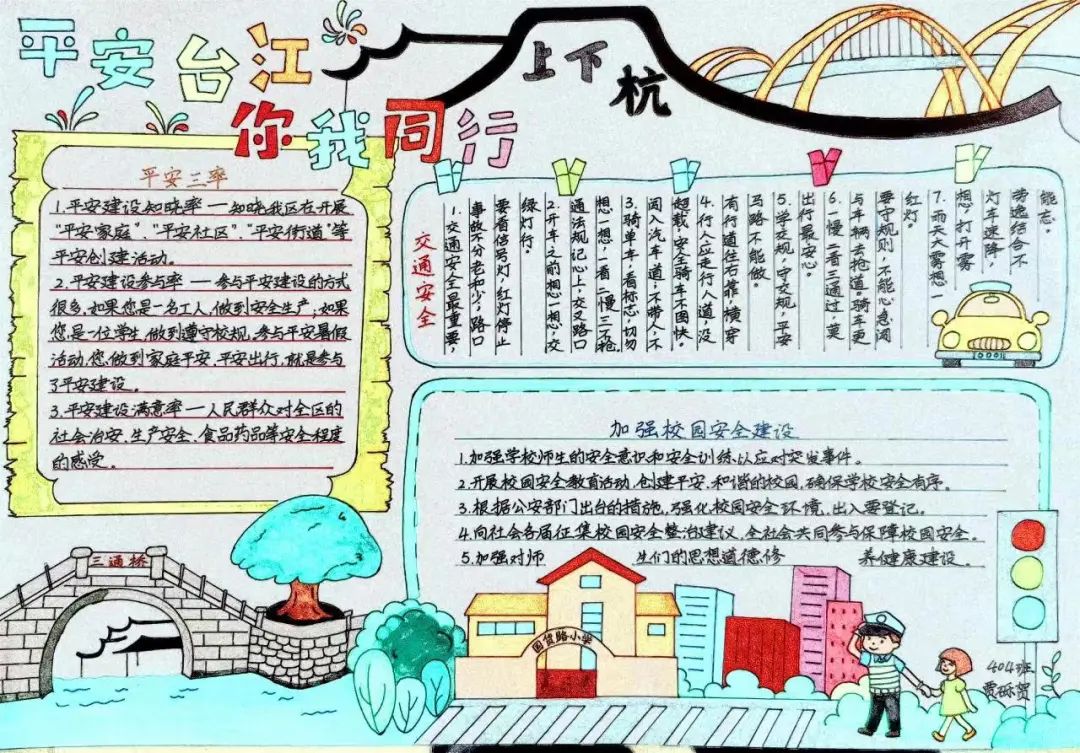 平安台江
你我同行
上下杭
平安三率
1.平安建设知晓率一知晓我区在开展
"平安家庭"、"平安社区"、"平安街道"等
平安创建活动。
2.平安建设参与率 一 参与平安建设的方式
很多,如果您是一名工人,做到安全生产;如果
您是一位学生,做到遵守校规,参与平安暑假
活动,您做到家庭平安、平安出行,就是参与
了平安建设。
3.平安建设满意率一人民群众对全区的
社会治安、生产安全、食品药品等安全程度
的感受。
交通安全
1.交通安全最重要,
事故不分老和少;路口
要看信号灯,红灯停止
绿灯行。
2.开车之前想一想,交
通法规记心上,交叉路口
想一想,一看二慢三不抢
3.骑单车,看标志,切切
闯入汽车道;不带人不
超载,安全骑车不图快。
4.行人应走行人道,没
有行道往右靠,横穿
马路不能做。
5.学交规,守交规,平安
出行最安心。
6.一慢二看三通过,莫
与车辆去抢道。骑车更
要守规则,不能心急闯
红灯。
7.雨天大雾想一
想,打开雾
灯车速降,
劳逸结合不
能忘。
加强校园安全建设
1.加强学校师生的安全意识和安全训练以应对突发事件。
2.开展校园安全教育活动,创建平安、和谐的校园,确保学校安全有序。
3.根据公安部门出台的措施,强化校园安全环境,出入要登记。
4.向社会各届征集校园安全整治建议,全社会共同参与保障校园安全。
5.加强对师 生们的思想道德修 养健康建设。
三通桥
国货路小学
404班